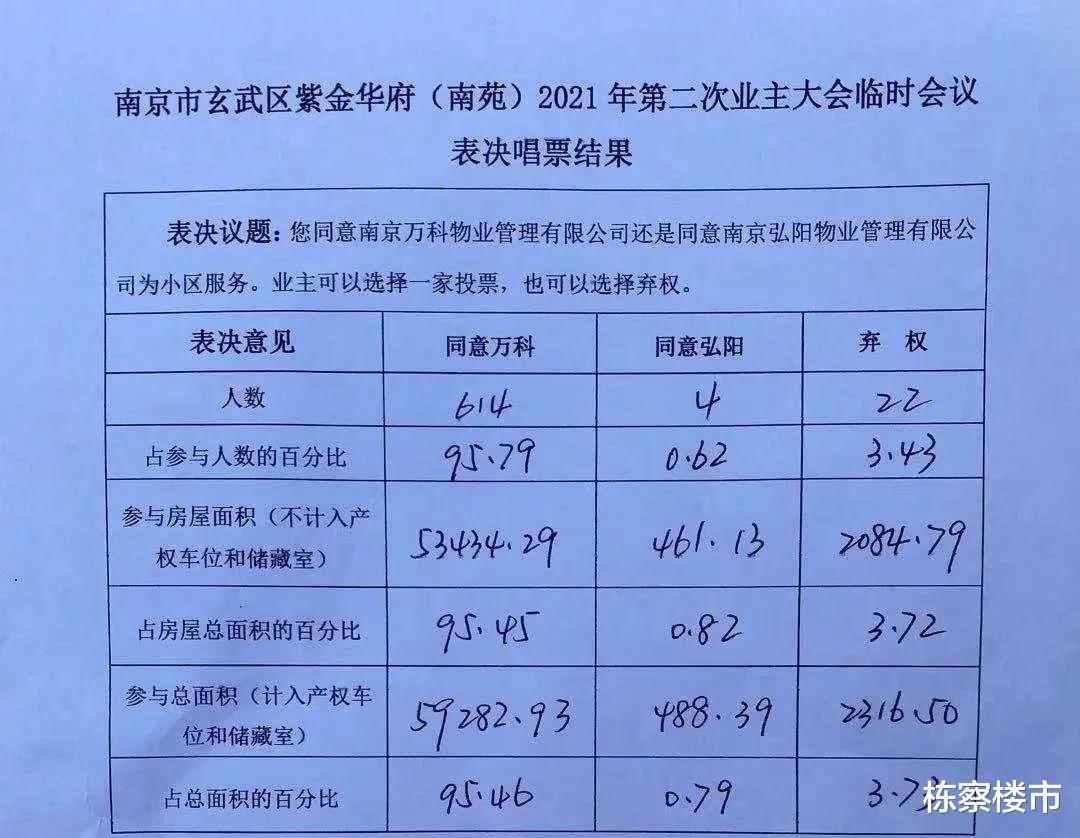 南京市玄武区紫金华府（南苑）2021年第二次业主大会临时会议
表决唱票结果
表决议题：您同意南京万科物业管理有限公司还是同意南京弘阳物业管理有限公
司为小区服务。业主可以选择一家投票，也可以选择弃权。
表决意见 同意万科 同意弘阳 弃 权
人数 614 4 22
占参与人数的百分比 95.79 0.62 3.43
参与房屋面积（不计入产
权车位和储藏室） 53434.29 461.13 2084.79
占房屋总面积的百分比 95.45 0.82 3.72
参与总面积（计入产权车
位和储藏室） 59282.93 488.39 2316.50
占总面积的百分比 95.46 0.79
栋察楼市